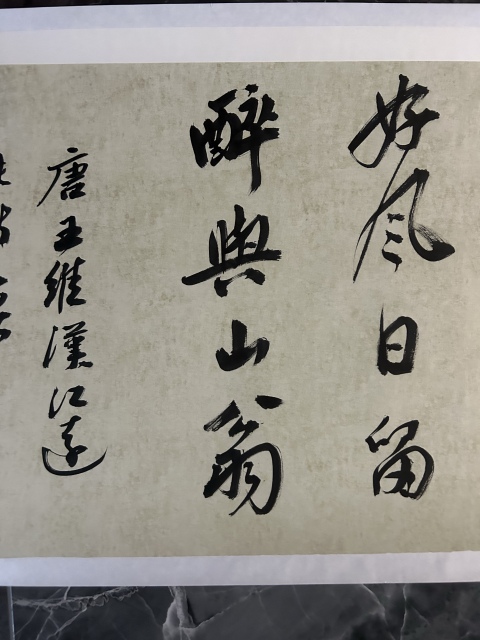 好风日留
醉與山翁
唐王維漢江遠